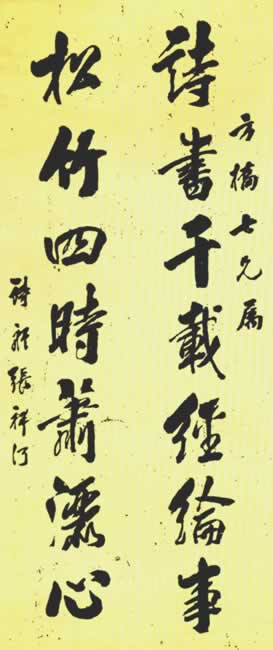 方橋七兄属
詩書千載經綸事
松竹四時蕭灑心
詩舲張祥河